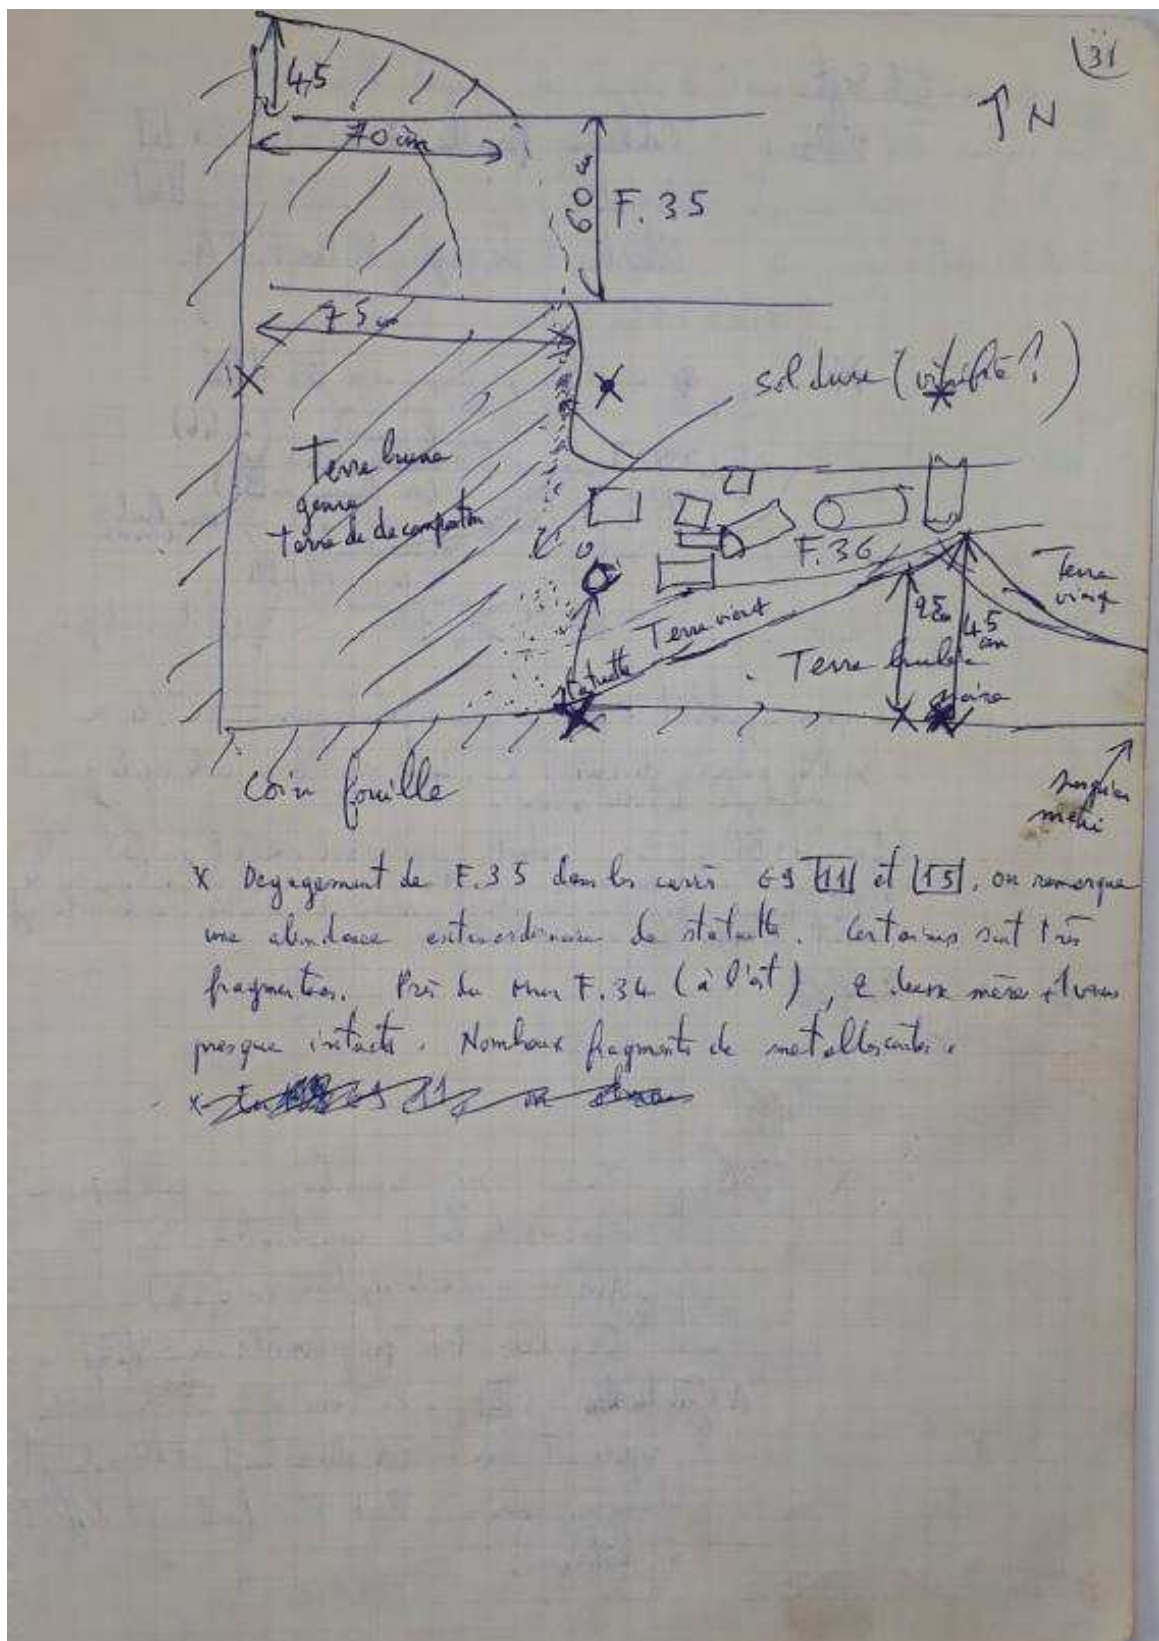 31
↑ N
45
70 cm
60 cm
F. 35
75 cm
sol dure (vitrifié ?)
Terre brune
genre
terre de decomposition
F. 36
Terre
vierge
Terre vierge
25
45
cm
Terre brulée
noire
statuette
Coin fouille
x Degagement de F.35 dans les carrés G9 11 et 15, on remarque
une abondance extraordinaire de statuette. Certaines sont très
fragmentées. Près du mur F.34 (à l'est), deux mère
presque intacts. Nombreux fragments de